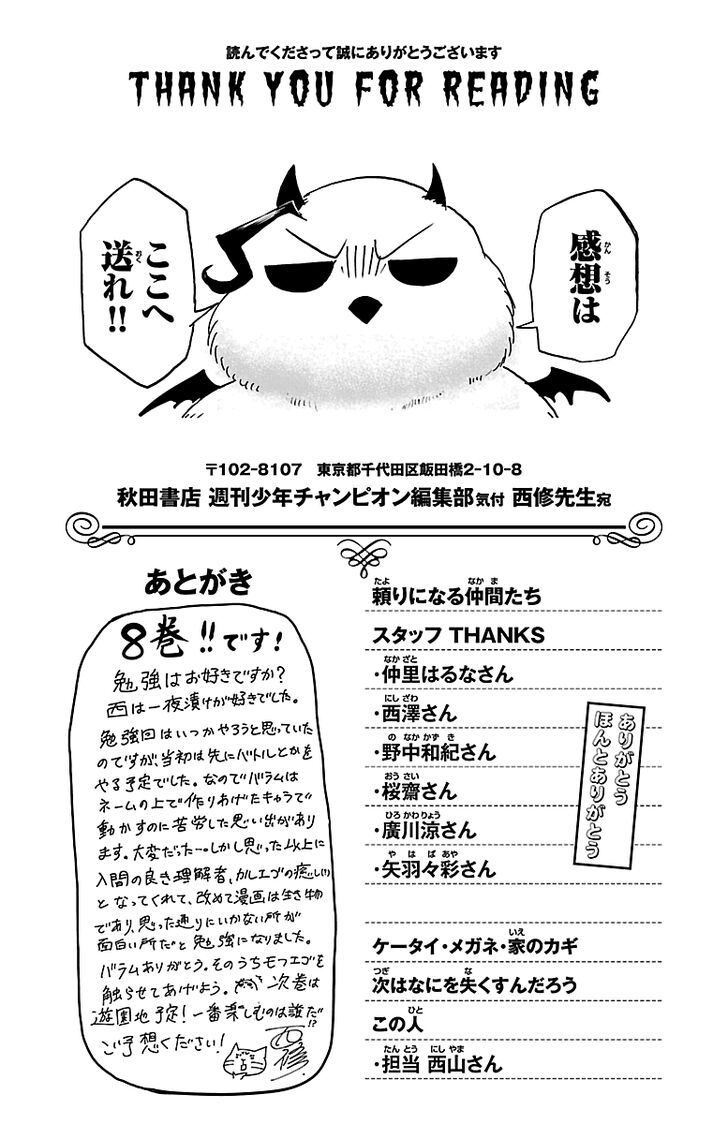 読んでくださって誠にありがとうございます
THANK YOU FOR READING
感想は
ここへ
送れ!!
〒102-8107 東京都千代田区飯田橋2-10-8
秋田書店 週刊少年チャンピオン編集部気付 西修先生宛
あとがき
8巻!!です!
勉強はお好きですか?
西は一夜漬けが好きでした。
勉強回はいつかやろうと思っていた
のですが、当初は先にバトルとかを
やる予定でした。なのでバラムは
ネームの上で作りあげたキャラで
動かすのに苦労した思い出があり
ます。大変だった…しかし思った以上に
入間の良き理解者、カルエゴの癒し(い)
となってくれて、改めて漫画は生き物
であり、思った通りにいかない所が
面白い所だと勉強になりました。
バラムありがとう。そのうちモフエゴを
触らせてあげよう。次巻は
遊園地予定!一番楽しむのは誰だ!?
ご予想ください!
西修
頼りになる仲間たち
スタッフ THANKS
・仲里はるなさん
・西澤さん
・野中和紀さん
・桜齋さん
・廣川涼さん
・矢羽々彩さん
ありがとう
ほんとありがとう
ケータイ・メガネ・家のカギ
次はなにを失くすんだろう
この人
・担当 西山さん